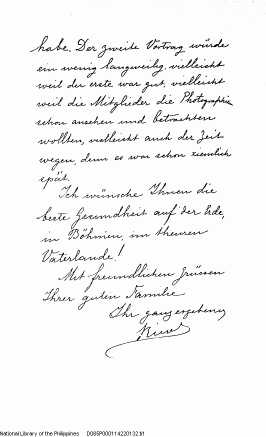 habe. Der zweite Vortrag würde
ein wenig langweilig, vielleicht
weil der erste war gut, vielleicht
weil die Mitglieder die Photographien
schon ansehen und betrachten
wollten, vielleicht auch der Zeit
wegen, denn es war schon ziemlich
spät.
Ich wünsche Ihnen die
beste Gesundheit auf der Erde,
in Böhmen, im theuren
Vaterlande!
Mit freundlichen Grüssen
Ihrer guten Familie
Ihr ganz ergebener
Rizal
National Library of the Philippines D085P000114220132.tif